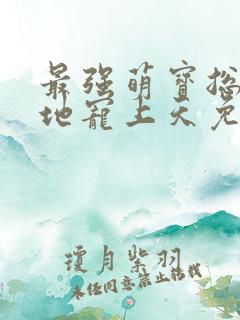 最强萌宝搃
地宠上天免
琼月紫羽
未经同意禁止转载